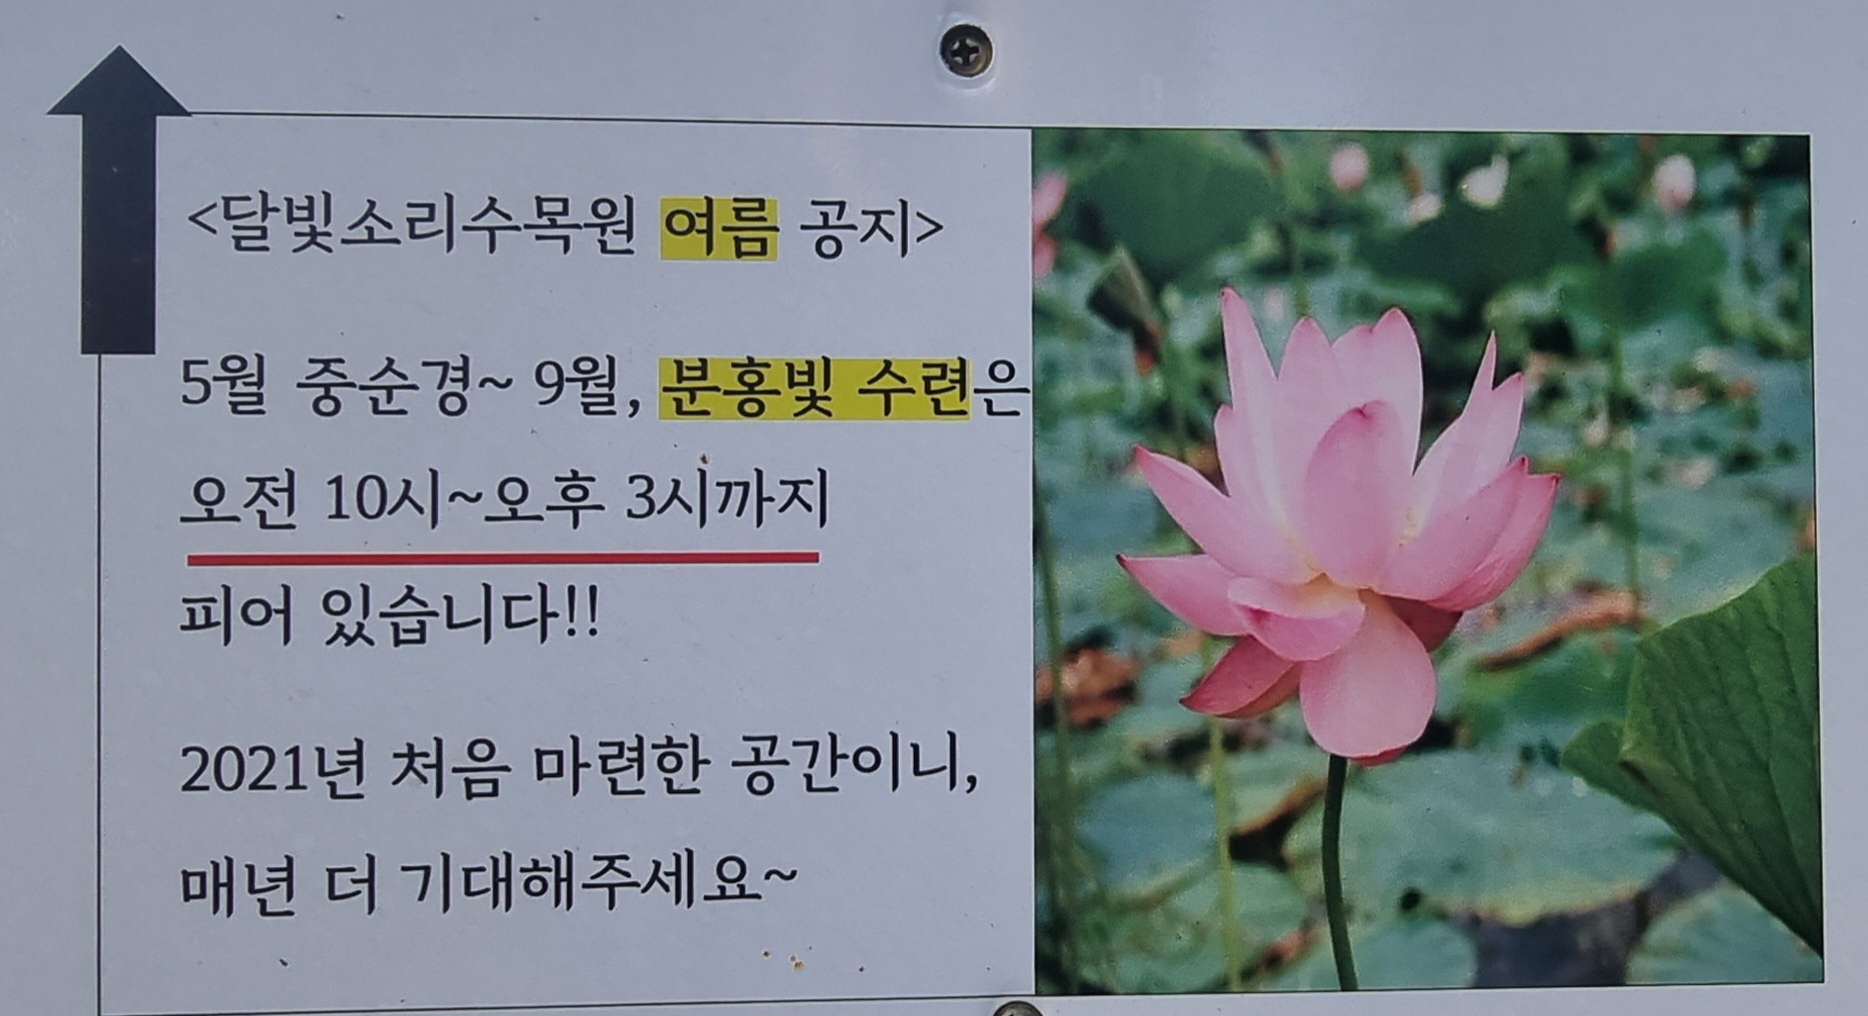 <달빛소리수목원 여름 공지>
5월 중순경~ 9월, 분홍빛 수련은
오전 10시~오후 3시까지
피어 있습니다!!
2021년 처음 마련한 공간이니,
매년 더 기대해주세요~